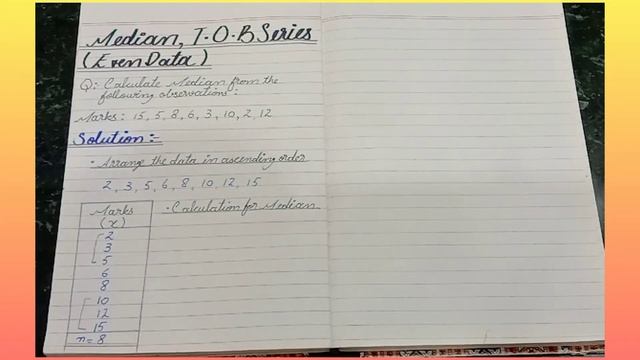 Median, I.O.B Series
(Even Data)
Q: Calculate Median from the
following observations:
Marks: 15, 5, 8, 6, 3, 10, 2, 12
Solution:-
• Arrange the data in ascending order
2, 3, 5, 6, 8, 10, 12, 15
Marks
(x)
2
3
5
6
8
10
12
15
n = 8
• Calculation for Median